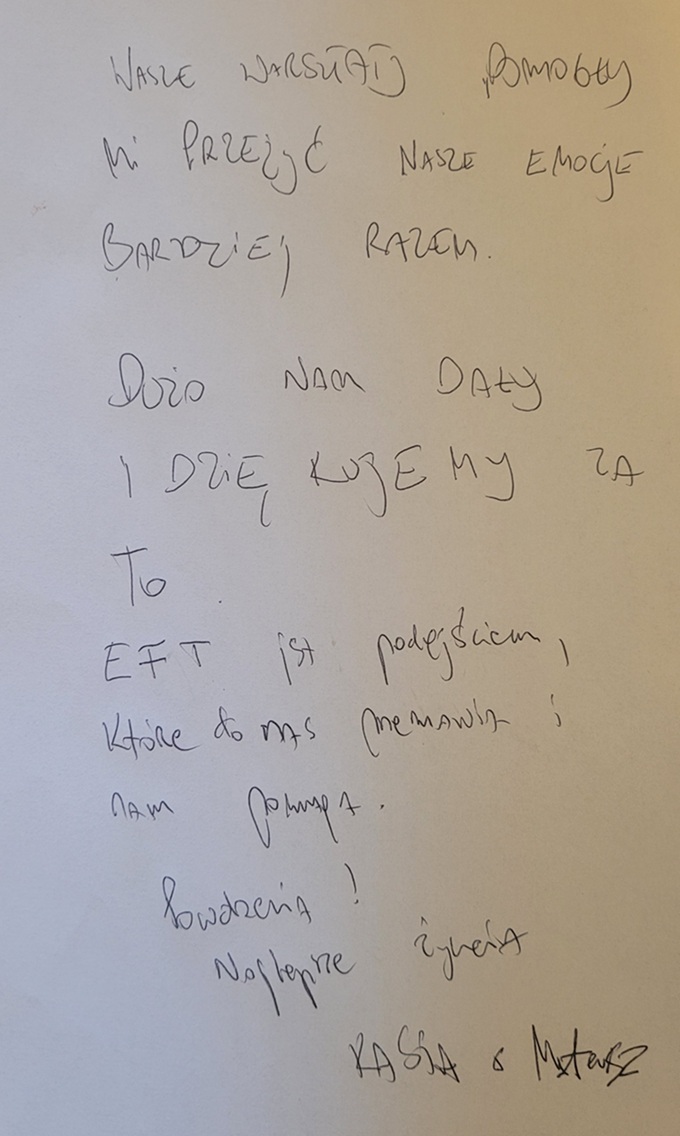 WASZE WARSZTATY POMOGŁY
MI PRZEŻYĆ NASZE EMOCJE
BARDZIEJ RAZEM.
DUŻO NAM DAŁY
I DZIĘKUJEMY ZA
TO.
EFT jest podejściem,
które do nas przemawia i
nam pomaga.
Powodzenia!
Najlepsze życzenia
KASIA & Mateusz